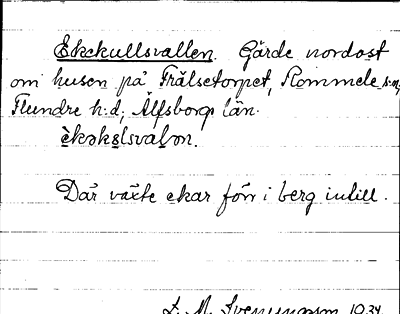 Ekekullsvallen. Gärde nordost
om husen på Frälsetorpet, Rommele s:n,
Flundre h:d, Älfsborgs län.
èkəkəlsvalən.
Där växte ekar förr i berg intill.
S. M. Svenungsson 1934